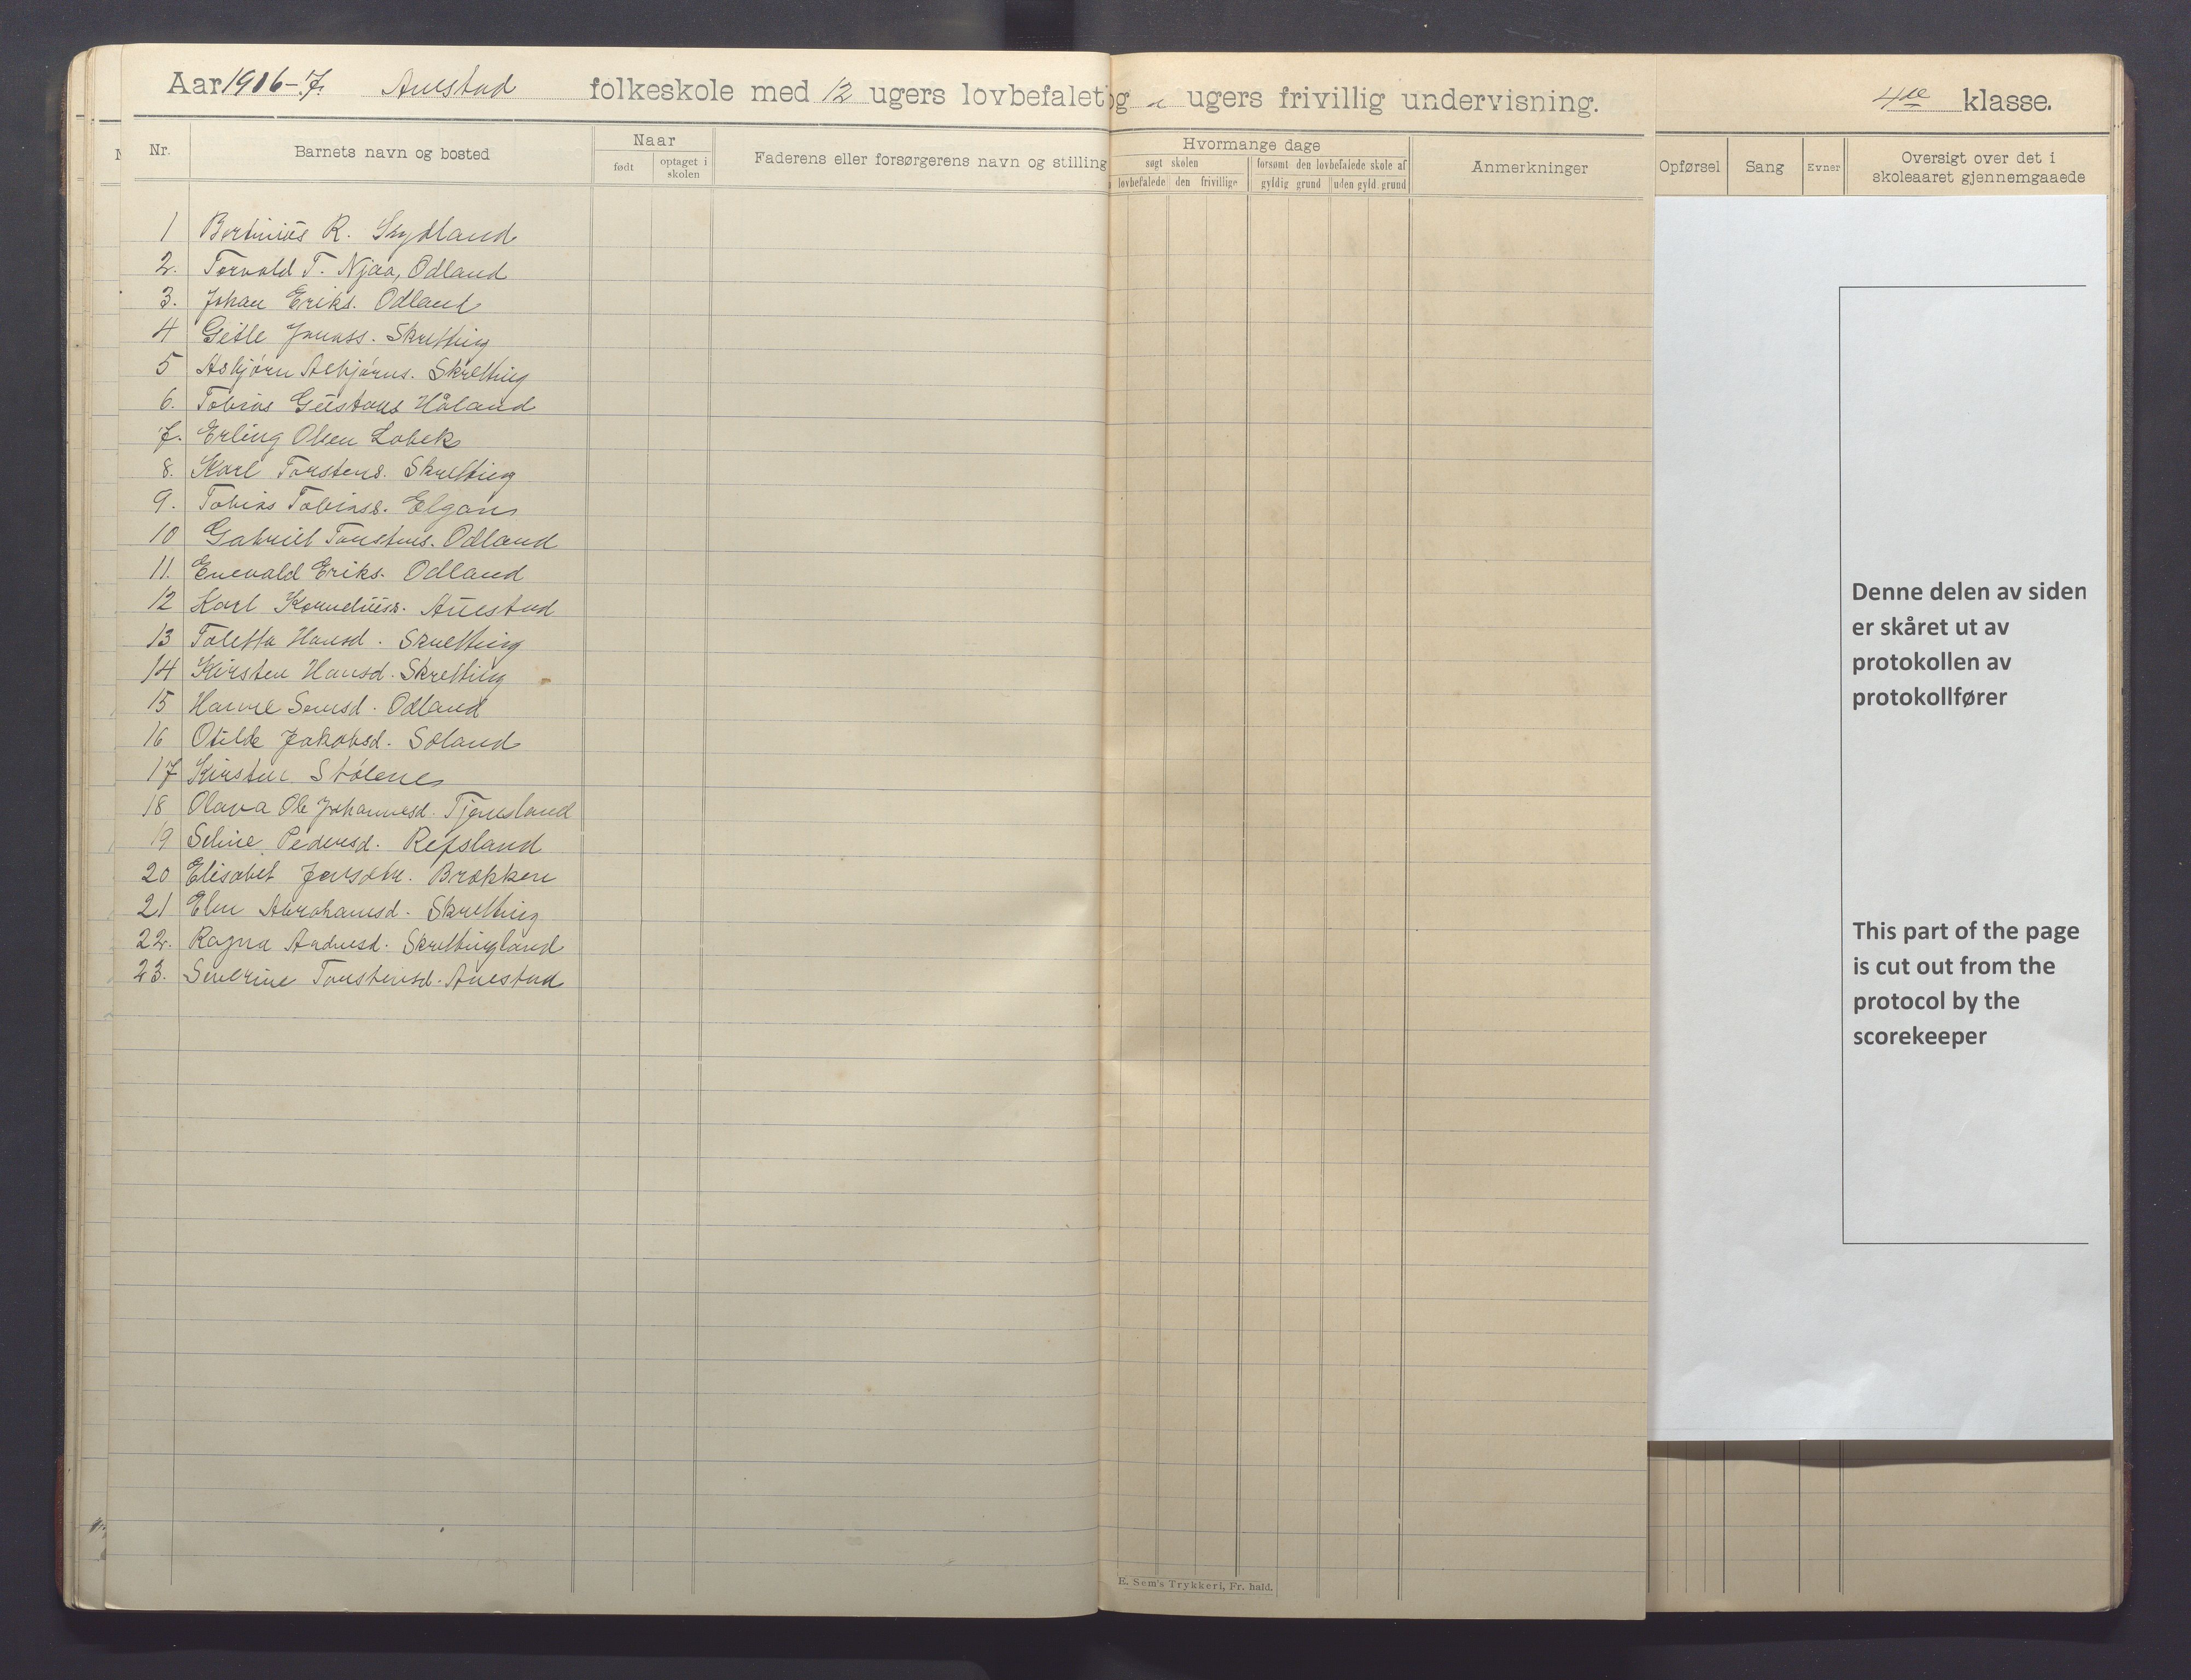 Aar 1906-7. Auestad folkeskole med 12 ugers lovbefalet og ugers frivillig undervisning. 4de klasse.
Nr. Barnets navn og bosted Naar født optaget i skolen Faderens eller forsørgerens navn og stilling Hvormange dage søgt skolen lovbefalede den frivillige forsømt den lovbefalede skole af gyldig grund uden gyld. grund Anmerkninger Opførsel Sang Evner Oversigt over det i skoleaaret gjennemgaaede
1 Bertinius R. Skydland
2. Torvald T. Njaa, Odland
3. Johan Eriks. Odland
4 Gitle Jonass. Skretting
5 Asbjørn Asbjørns. Skretting
6. Tobias Gustavs Håland
7. Erling Olsen Lobek
8. Karl Torstens. Skretting
9. Tobias Tobiass. Elgan
10 Gabriel Tonstens. Odland
11. Enevald Eriks. Odland
12 Karl Korneliuss. Auestad
13 Taletta Hansd. Skretting
14 Kirsten Hansd. Skretting
15 Hanne Sensd. Odland
16 Otilde Jakobsd. Søland
17 Kirsten Stølene
18 Olava Ole Johannesd. Tjensland
19 Seline Pedersd. Refsland
20 Elisabet Jensdtr. Brækken
21 Elen Abrahamsd. Skretting
22. Ragna Andresd. Skrettingland
23. Severine Tonstensd. Auestad
Denne delen av siden
er skåret ut av
protokollen av
protokollfører
This part of the page
is cut out from the
protocol by the
scorekeeper
E. Sem's Trykkeri, Fr. hald.